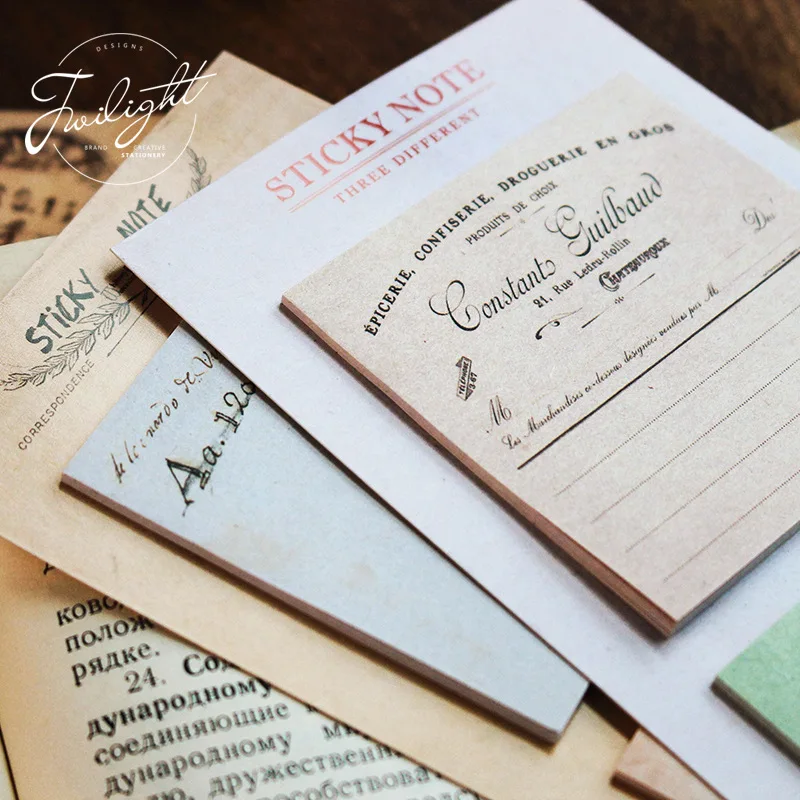 DESIGNS
Twilight
BRAND CREATIVE
STATIONERY
STICKY NOTE
THREE DIFFERENT
ÉPICERIE, CONFISERIE, DROGUERIE EN GROS
PRODUITS DE CHOIX
Constant Guilbaud
21, Rue Ledru-Rollin
CHATEAUROUX
Doit
TÉLÉPHONE
3-67
M
Les Marchandises ci-dessous désignées vendues par M.
STICKY NOTE
CORRESPONDENCE
de leonardo de
Aa. 120
полож
рядке.
24. Со
дународному
соединяющие
дународному ми
дружествен
способствова